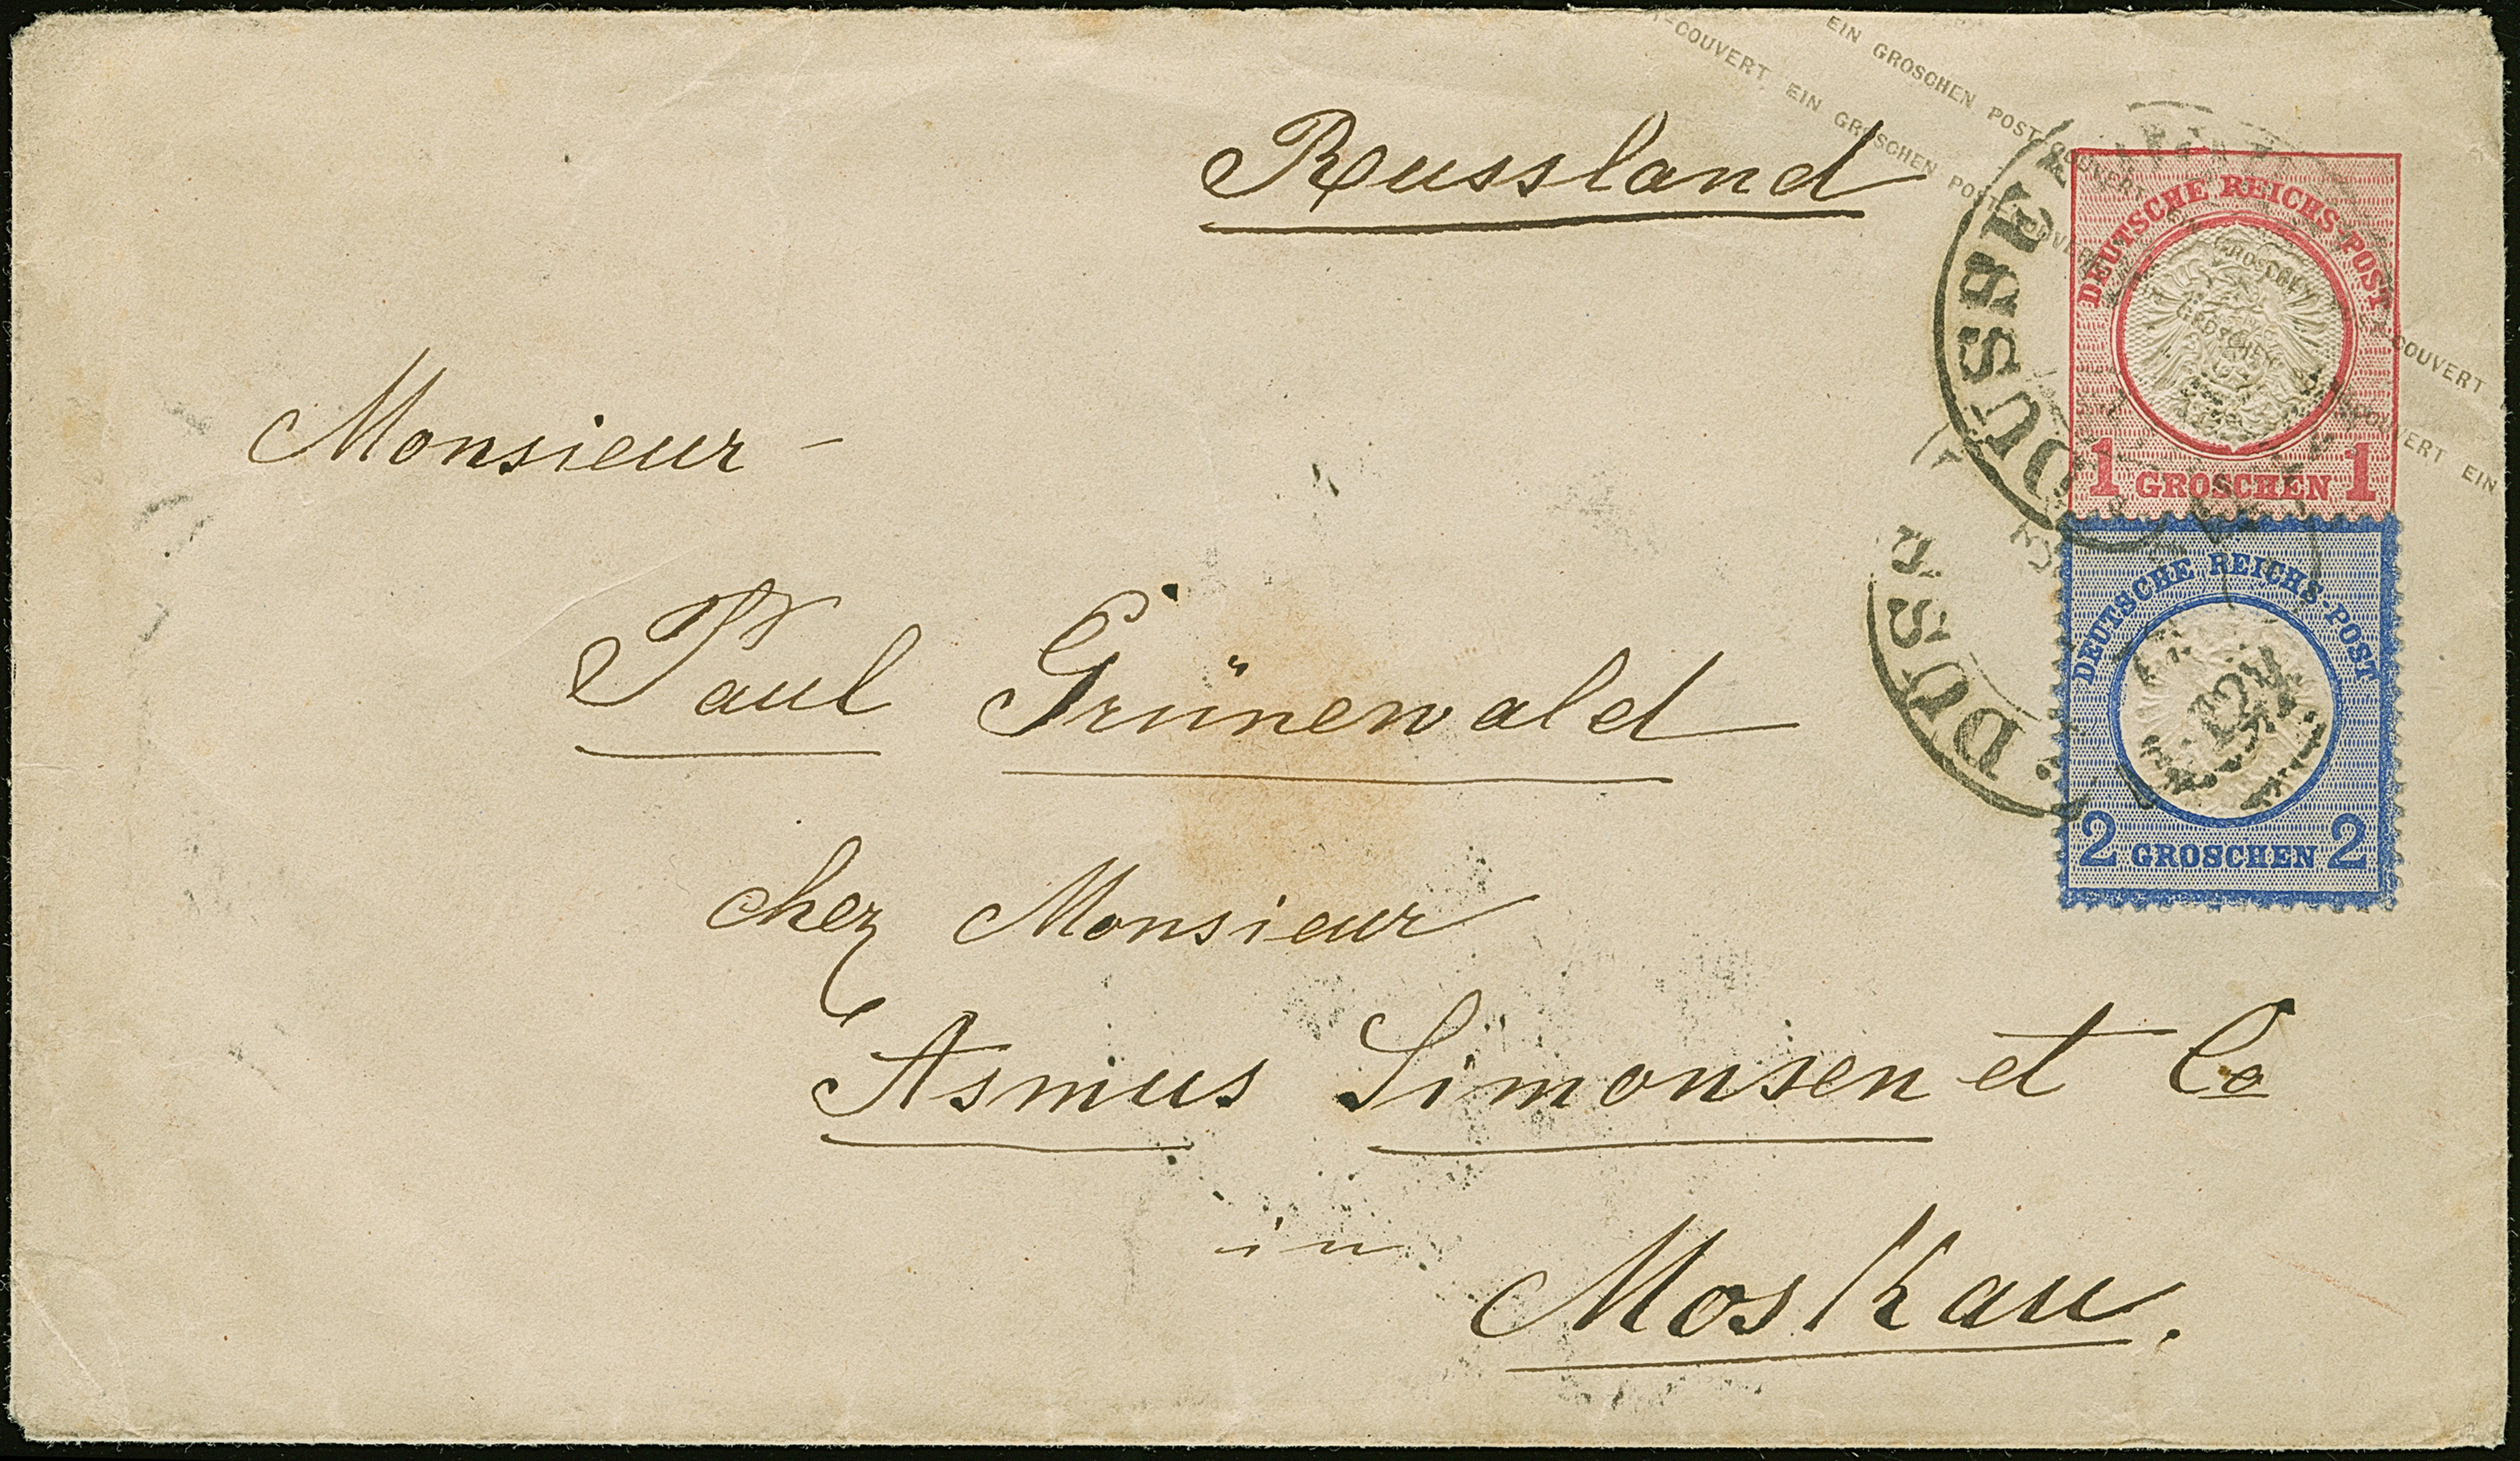 EIN GROSCHEN POST-COUVERT
-COUVERT EIN GROSCHEN POST-COUVERT
Russland
DEUTSCHE REICHS-POST
1 GROSCHEN 1
COUVERT EIN
Monsieur
DEUTSCHE REICHS-POST
2 GROSCHEN 2
DÜSSE
DÜS
Paul Grünewald
chez Monsieur
Asmus Simonsen et Co
in
Moskau.